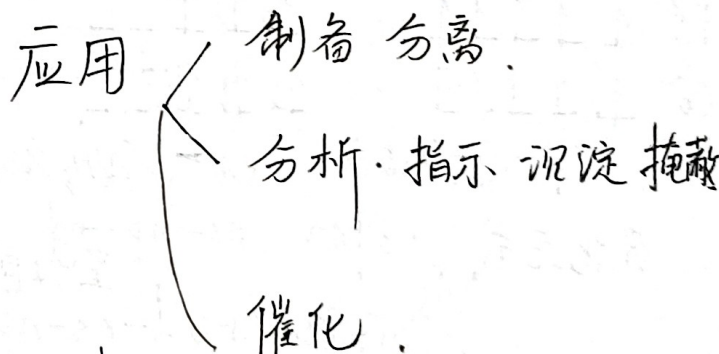 应用
制备 分离.
分析.指示 沉淀 掩蔽
催化.